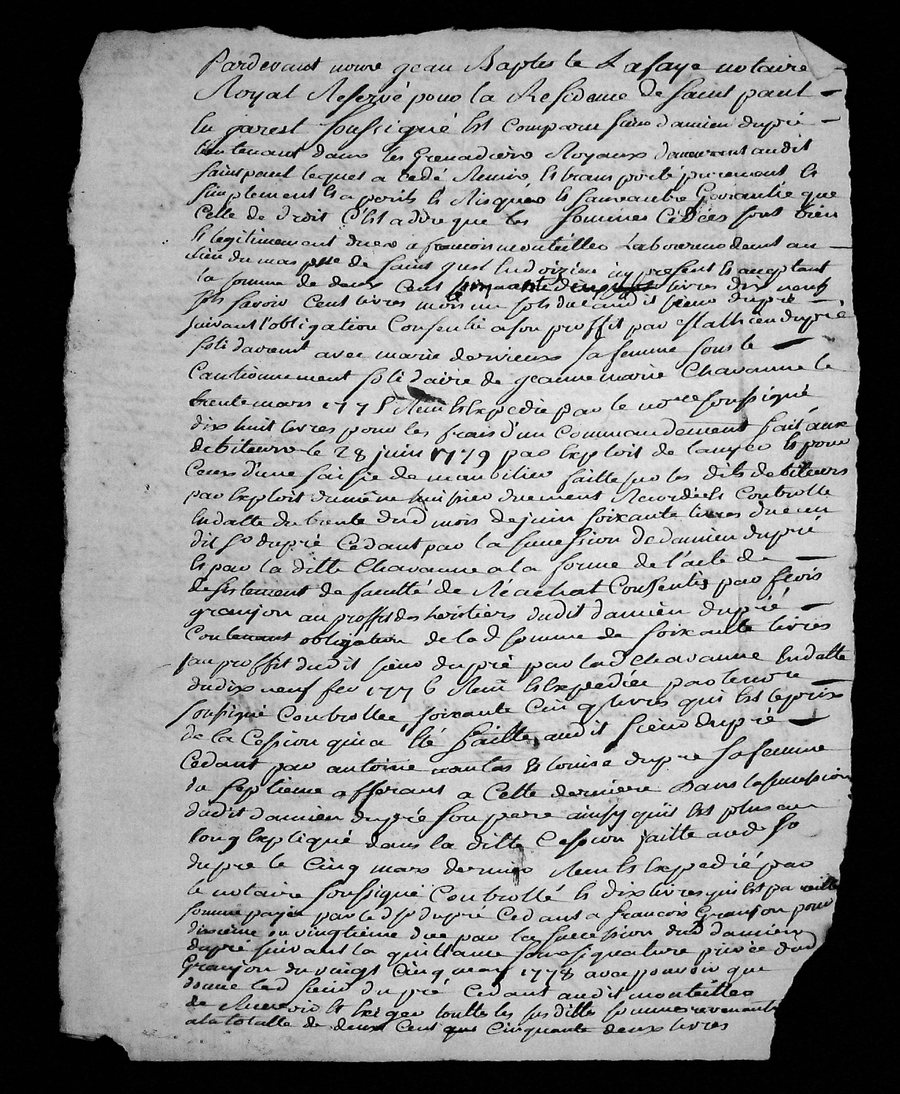 Pardevant nous jean Baptiste Lafaye notaire
Royal Reservé pour la Residence de saint paul
En jarest soussigné Est comparu sieur damien dupré
lieutenant dans les Grenadiers Royaux demeurant audit
saint paul lequel a cedé Remis Et transporté purement Et
simplement Et a perils Et Risques Et sans autre Garantie que
Celle de droit C'est adire que les sommes Cedées sont bien
Et legitimement dues a francois monteiller Laboureur demt au
lieu du mas psse de saint
la somme de deux Cent livres dix neuf
sols savoir Cent livres mois un sols due audit sieur dupré
suivant l'obligation Consentie a son proffit par Mathieu dupré
solidairemt avec marie derrieux sa femme sous le
Cautionnement solidaire de jeanne marie Chavanne le
trente mars 177 Expedie par le nore soussigné
dix huit livres pour les frais d'un Commandement fait aux
debiteurs le 28 juin 1779 par Exploit de Et pour
Ceux d'une saisie de mambilier faitte sur les dits debiteurs
par Exploit du même huissier duement Et Controllé
En datte du trente dud mois de juin soixante livres due au
dit sr dupré Cedant par la succession de damien dupré
Et par la ditte Chavanne a la forme de l'acte de
desistement de faculté de Réachat Consentis par frois
granjon au proffit des heritiers dudit damien dupré
Contenant obligation de lad somme de soixante livres
au proffit dudit sieur dupré par lade Chavanne En datte
du dix neuf fev 1776 Et Expediée par le nore
soussigné Controllée soixante Cinq livres qui Est le prix
de la Cession qui a Eté faitte audit sieur dupré
Cedant par antoine Et louise dupré sa femme
du septieme afferant a Cette derniere dans la succession
dudit damien dupré son pere ainsy qu'il Est plus au
long Expliqué dans la ditte Cession faitte aud sr
dupré le Cinq mars dernier Et Expedié par
le notaire soussigné Controllé Et dix livres qui Est pareille
somme payée par led sr dupré Cedant a francois Granjon pour
dixieme ou vingtieme due par la succession dud damien
dupré suivant la quittance sous signature privée dud
Granjon du vingt Cinq may 1778 avec pouvoir que
donne led sieur dupré Cedant audit monteiller
de Et Exiger touttes les susdittes sommes revenantes
a la totalle de deux Cent Cinquante deux livres